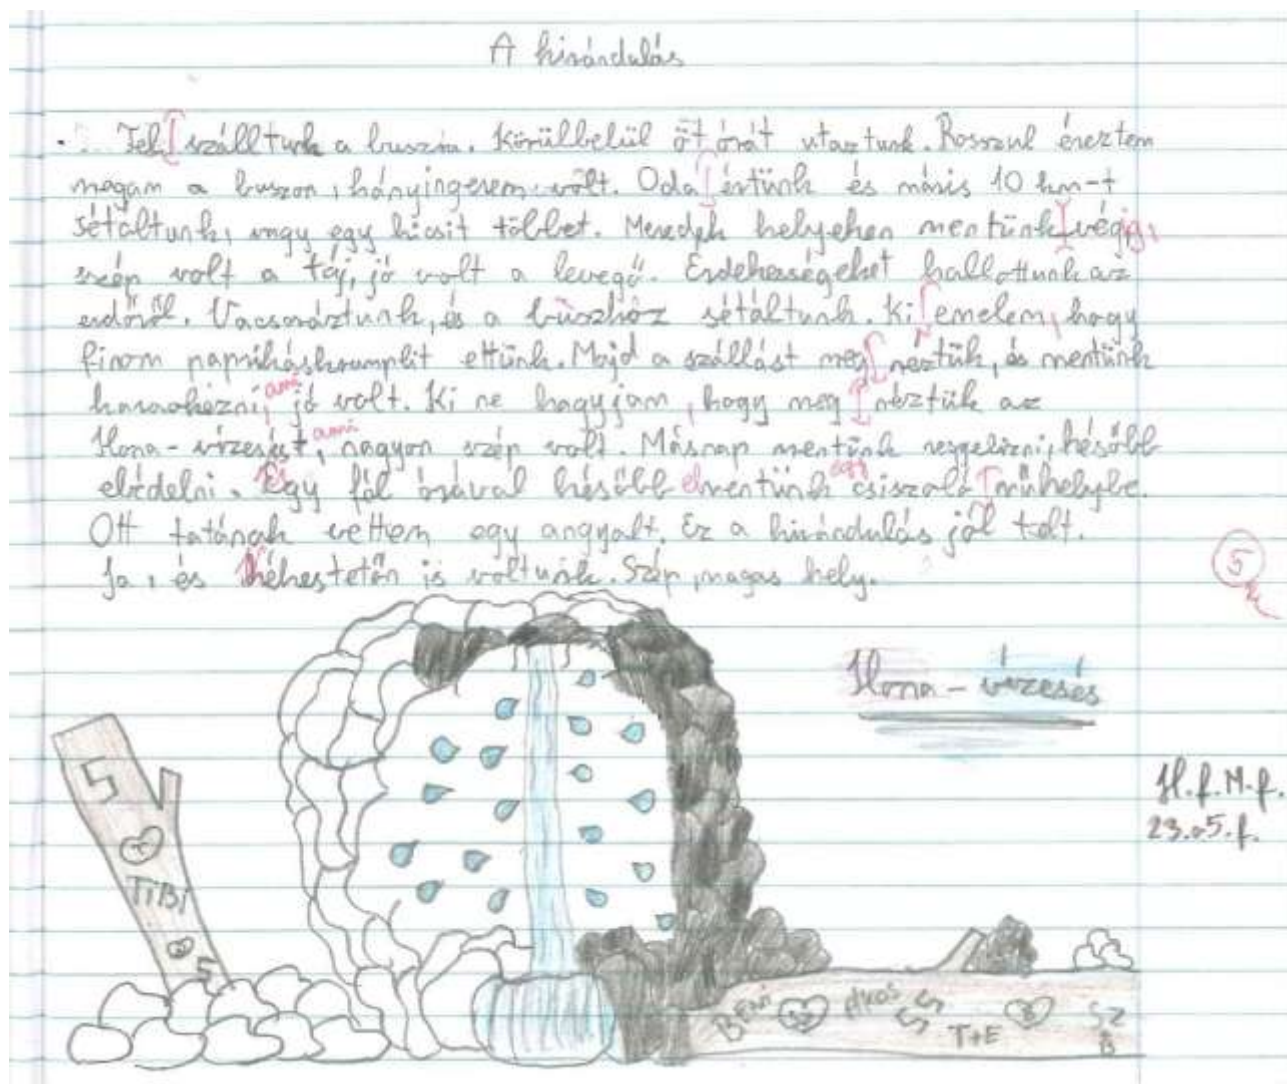 A kirándulás
Fel szálltunk a buszra. Körülbelül öt órát utaztunk. Rosszul éreztem
magam a buszon, hányingerem volt. Oda értünk és máris 10 km-t
sétáltunk, vagy egy kicsit többet. Meredek helyeken mentünk végig,
szép volt a táj, jó volt a levegő. Érdekességeket hallottunk az
erdőről. Vacsoráztunk, és a buszhoz sétáltunk. Ki emelem, hogy
finom paprikáskrumplit ettünk. Majd a szállást meg néztük, és mentünk
karaokézni, ami jó volt. Ki ne hagyjam, hogy meg néztük az
Ilona-vízesést, ami nagyon szép volt. Másnap mentünk reggelizni, később
ebédelni. Egy fél órával később elmentünk egy csiszoló műhelybe.
Ott tatának vettem egy angyalt. Ez a kirándulás jól telt.
Ja, és Kékestetőn is voltunk. Szép, magas hely.
5
Ilona-vízesés
H.f. M.f.
23.o5.f.
S
TiBi
S
BENi
ÁKOS
S
S
T+E
SZ
B